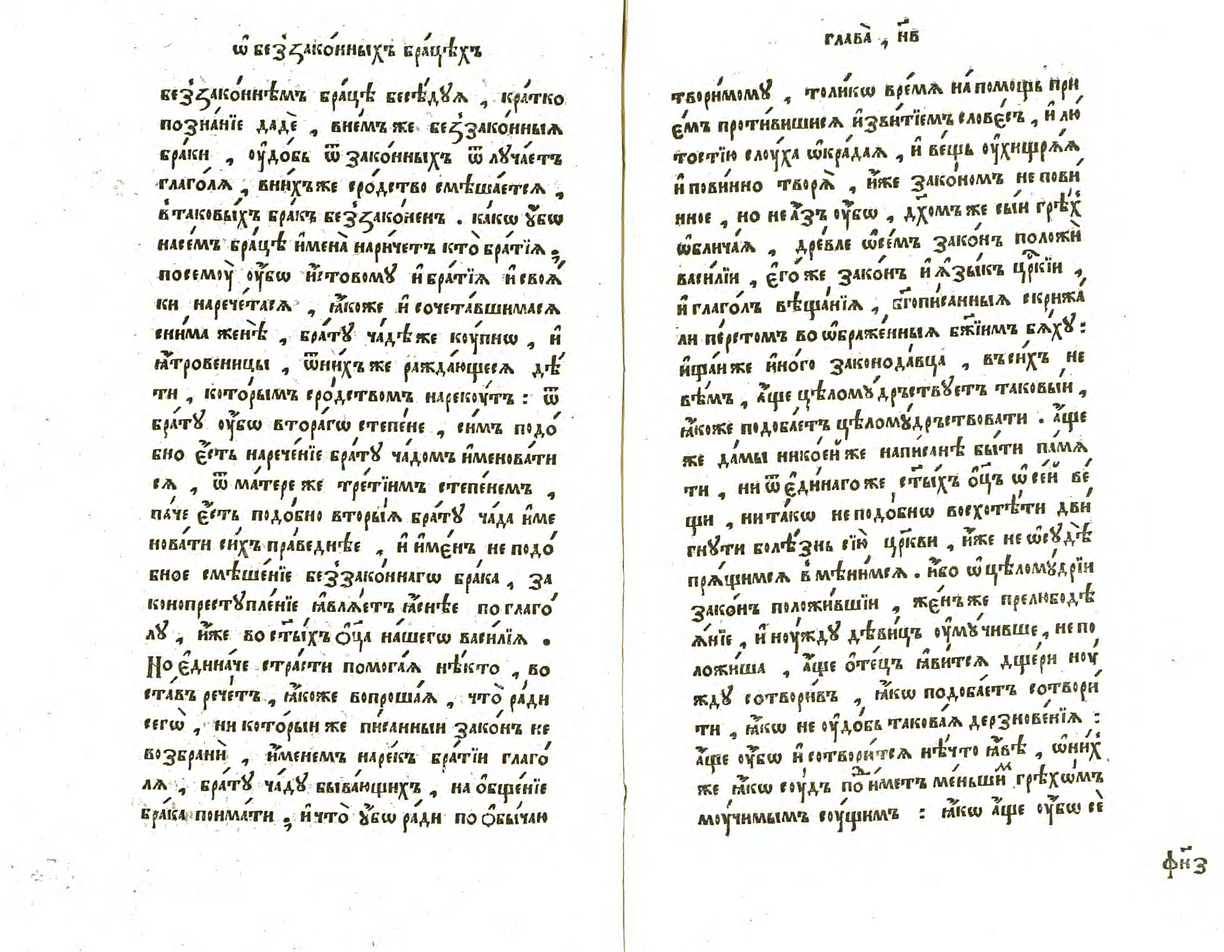 ѡ҆ беззако́нныхъ бра́цѣхъ
беззако́ннѣмъ бра́цѣ бесѣ́дꙋѧ , кра́тко
позна́нїе дадѐ , вне́мъже беззако́нныѧ
бра́ки , оу҆до́бь ѿ зако́нныхъ ѿлꙋча́етъ
глаго́лѧ , вни́хъже сро́дство смѣша́етсѧ ,
в̾таковы́хъ бра́къ беззако́ненъ . ка́кѡ ᲂу҆́бѡ
насе́мъ бра́цѣ и҆мена̀ нарече́тъ кто̀ бра́тїѧ ;
посемоу̀ оу҆́бѡ и҆́стовомꙋ и҆ бра́тїѧ и҆ своѧ́
ки нарече́тасѧ , ꙗ҆́коже и҆ сочета́вшимасѧ
сни́ма женѣ̀ , бра́тꙋ ча́дѣже коу́пнѡ , и҆
ꙗ҆́тровеницы , ѿни́хъже ражда́ющеесѧ дѣ́
ти , кото́рымъ сро́дствомъ нарекоу́тъ : ѿ
бра́тꙋ оу҆́бѡ втора́гѡ степе́не , си́мъ подо́
бно є҆́сть нарече́нїе бра́тꙋ ча́домъ и҆менова́ти
сѧ , ѿ ма́тере же тре́тїимъ степе́немъ ,
па́че є҆́сть подо́бно вторы́ѧ бра́тꙋ ча́да и҆ме
нова́ти си́хъ пра́веднѣе , и҆ и҆ме́нъ не подо́
бное смѣше́нїе беззако́ннагѡ бра́ка , за
конопрестꙋпле́нїе ꙗ҆влѧ́етъ ꙗ҆́снѣе по глаго́
лꙋ , и҆́же во ст҃ы́хъ ѻ҆ц҃а на́шегѡ васи́лїѧ .
Но є҆дина́че стра́сти помога́ѧ нѣ́кто , во
ста́въ рече́тъ , ꙗ҆́коже вопроша́ѧ , что̀ ра́ди
сегѡ̀ , ни кото́рыи же пи́санныи зако́нъ не
возбранѝ , и҆́менемъ наре́къ бра́тїи глаго́
лѧ , бра́тꙋ ча́дꙋ быва́ющихъ , на ѻ҆бще́нїе
бра́ка поима́ти , и҆ что̀ ᲂу҆́бѡ ра́ди по ѻ҆бы́чаю
глава̀ , н҃в
твори́момꙋ , толи́кѡ вре́мѧ на́помощь при
є́мъ проти́вишисѧ и҆зви́тїемъ слове́съ , и҆ лю́
тостїю слоу́ха ѡ҆кра́даѧ , и҆ ве́щь оу҆хищрѧ́ѧ
и҆ пови́нно творѧ̀ , и҆́же зако́номъ не пови́
нное , но не а҆́зъ оу҆́бѡ , дх҃омъ же сы́и грѣ́хъ
ѡ҆блича́ѧ , дре́вле ѡ҆ се́мъ зако́нъ положѝ
васи́лїи , є҆го́же зако́нъ и҆ ѧ҆зы́къ цр҃кїи ,
и҆ глаго́лъ вѣща́нїѧ , бг҃опи́санныѧ скрижа́
ли пе́рстомъ во ѡ҆браже́нныѧ бж҃їимъ бѧ́хꙋ :
и҆щаⷩ҇же и҆но́го законода́вца , въ си́хъ не
вѣ́мъ , а҆́ще цѣломꙋ́дръствꙋетъ таковы́и ,
ꙗ҆́коже подоба́етъ цѣломꙋ́дръствовати . а҆́ще
же да́мы нико́ей же написанѣ̀ бы́ти па́мѧ
ти , ни ѿ є҆ди́наго же ст҃ы́хъ ѻ҆ц҃ъ ѡ҆ се́й ве́
щи , ни та́кѡ непо́добнѡ восхотѣ́ти дви́
гнꙋти болѣ́знь сїю̀ цр҃кви , и҆́же не ѡ҆сꙋ́дѣ
прѧ́щимсѧ в̾мѣни́мсѧ . и҆́бо ѡ҆ цѣломꙋ́дрїи
зако́нъ положи́вшїи , же́нъже прелюбодѣ
ѧ́нїе , и҆ ноу́ждꙋ дѣви́цъ оу҆мꙋ́чивше , не по
ложи́ша , а҆́ще ѻ҆те́цъ ꙗ҆ви́тсѧ дще́ри ноу́
ждꙋ сотвори́въ , ꙗ҆́кѡ подоба́етъ сотвори́
ти , ꙗ҆́кѡ не оу҆до́бь такова́ѧ дерзнове́нїѧ :
а҆́ще оу҆́бѡ и҆ сотвори́тсѧ нѣ́что ꙗ҆́вѣ , ѡ҆ни́х
же ꙗ҆́кѡ соу́дъ по́иметъ ме́ньшиⷨ грѣхѡ́мъ
моу́чимымъ соу́щимъ : ꙗ҆́кѡ а҆́ще оу҆́бѡ сѐ
фн҃з